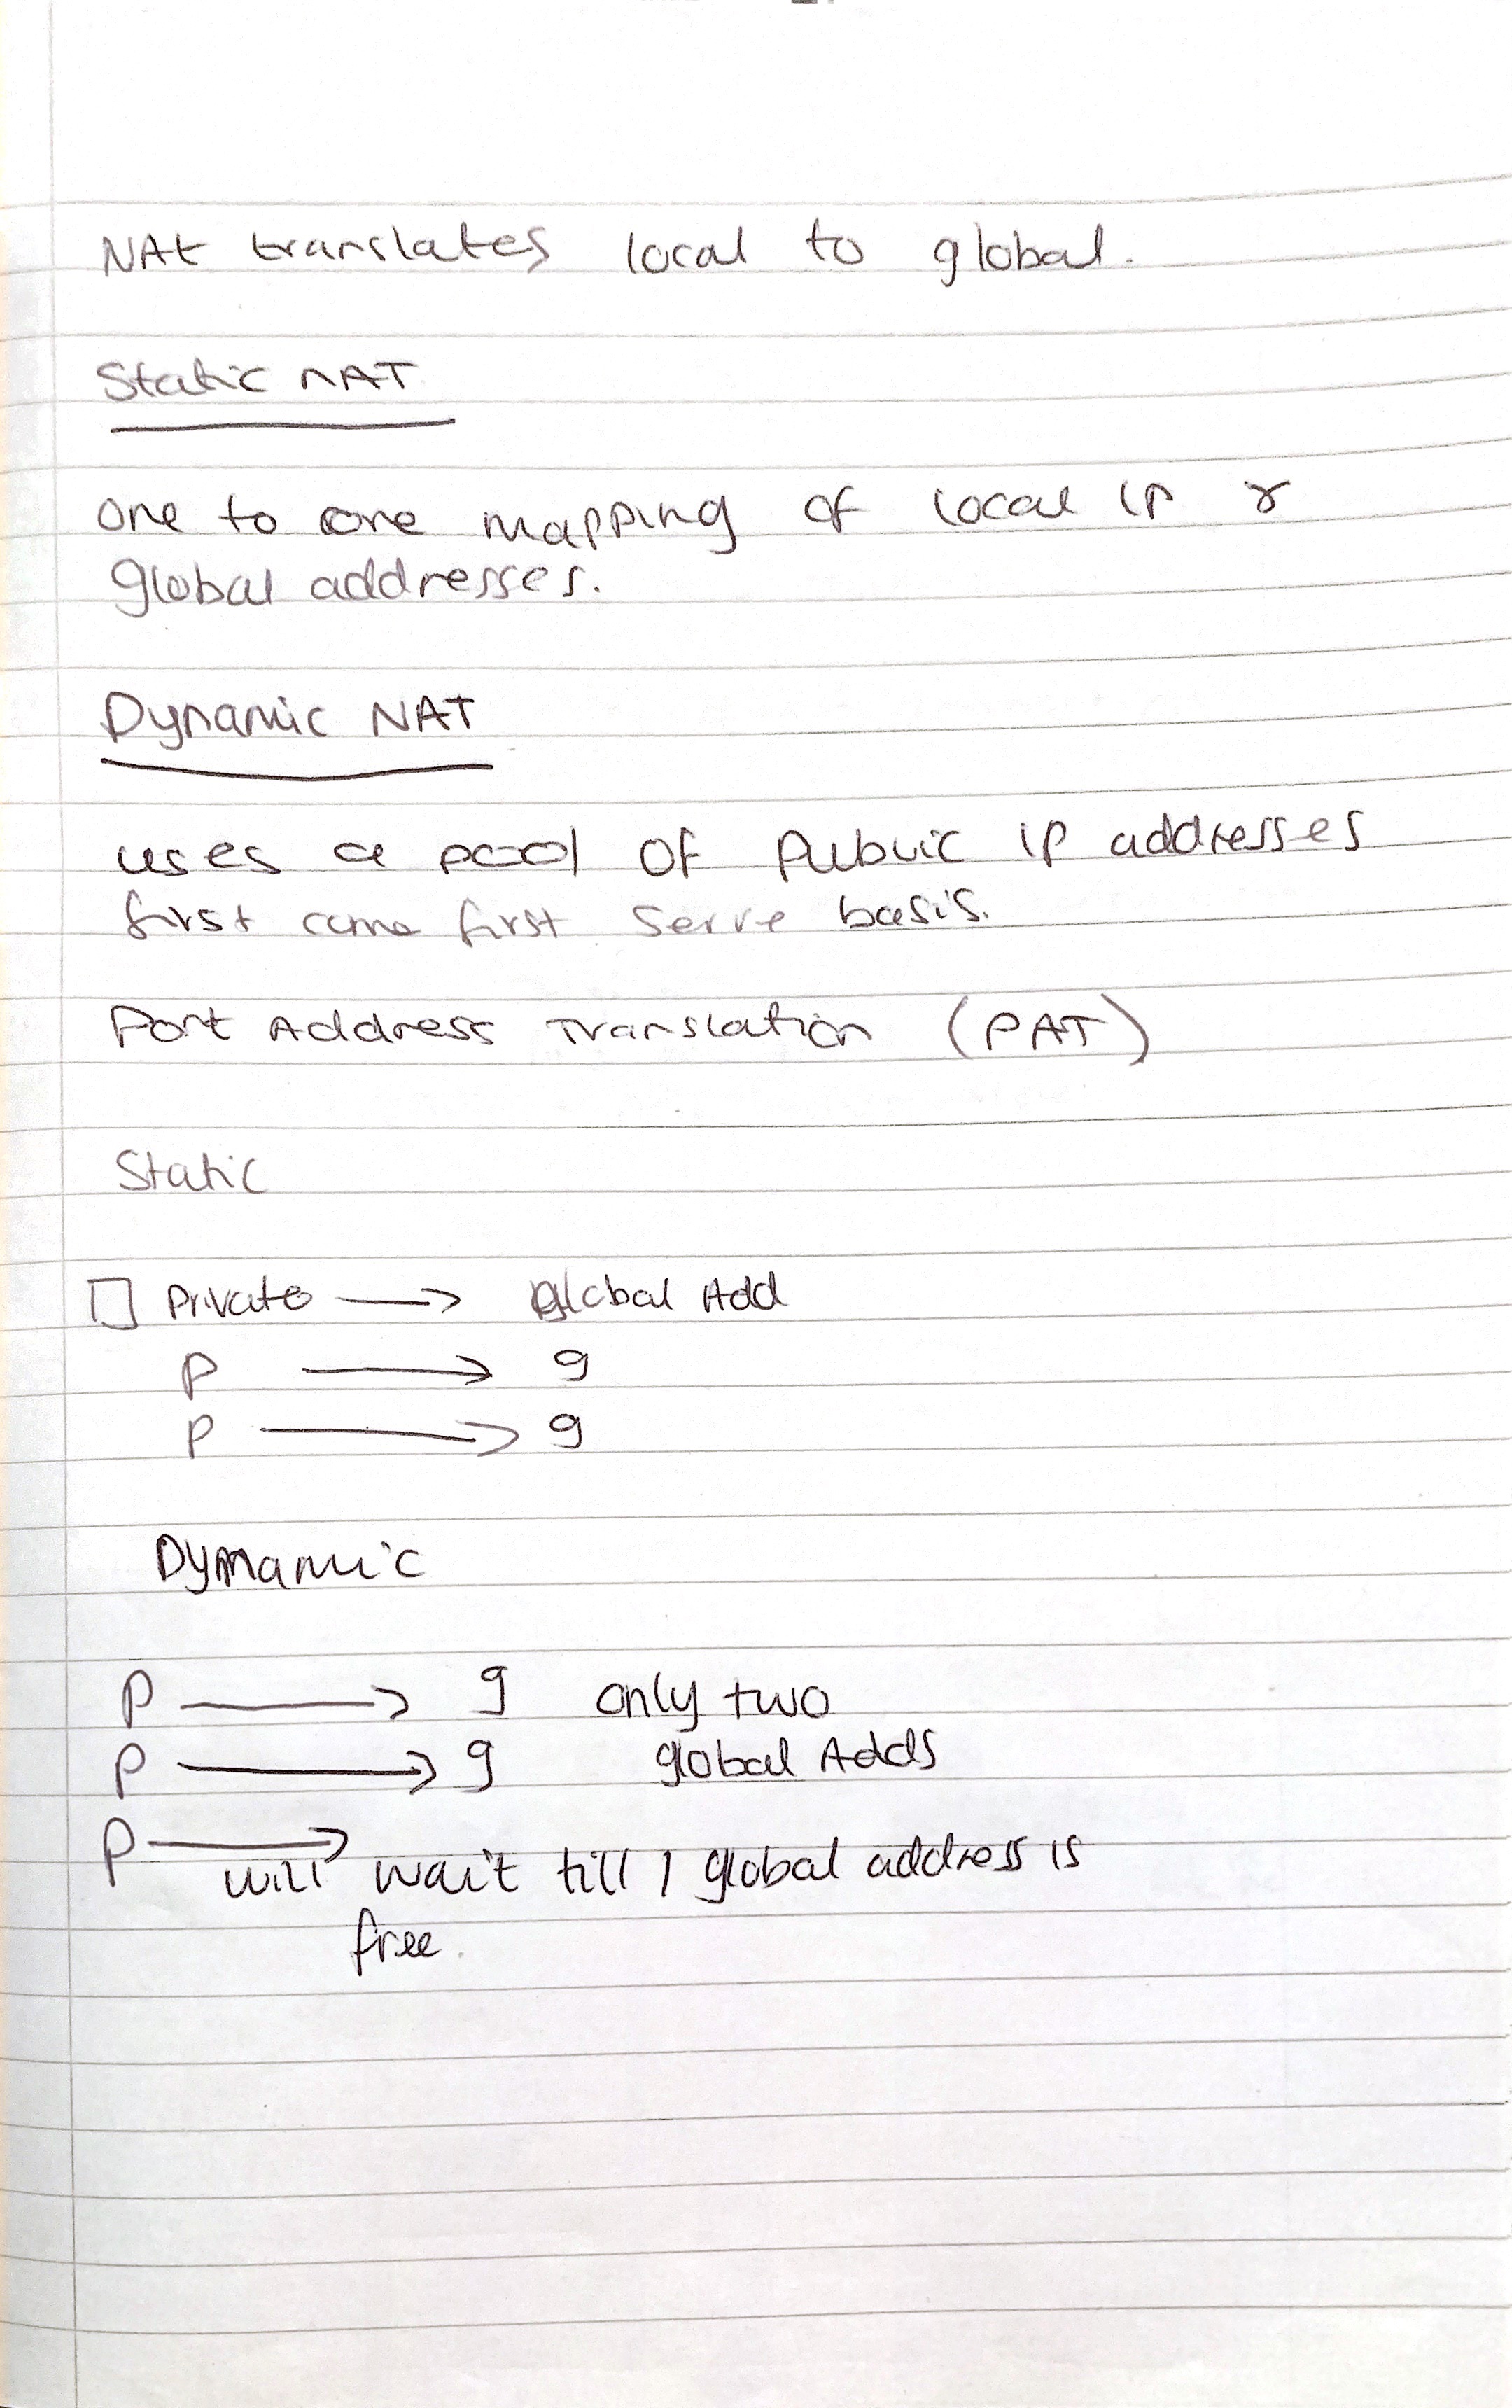 NAt translates local to global.
Static NAT
one to one mapping of local IP &
global addresses.
Dynamic NAT
uses a pool of Public IP addresses
first come first serve basis.
Port Address Translation (PAT)
Static
Private → global Add
P → g
P → g
Dynamic
P → g only two
P → g global Adds
P →
will wait till 1 global address is
free.